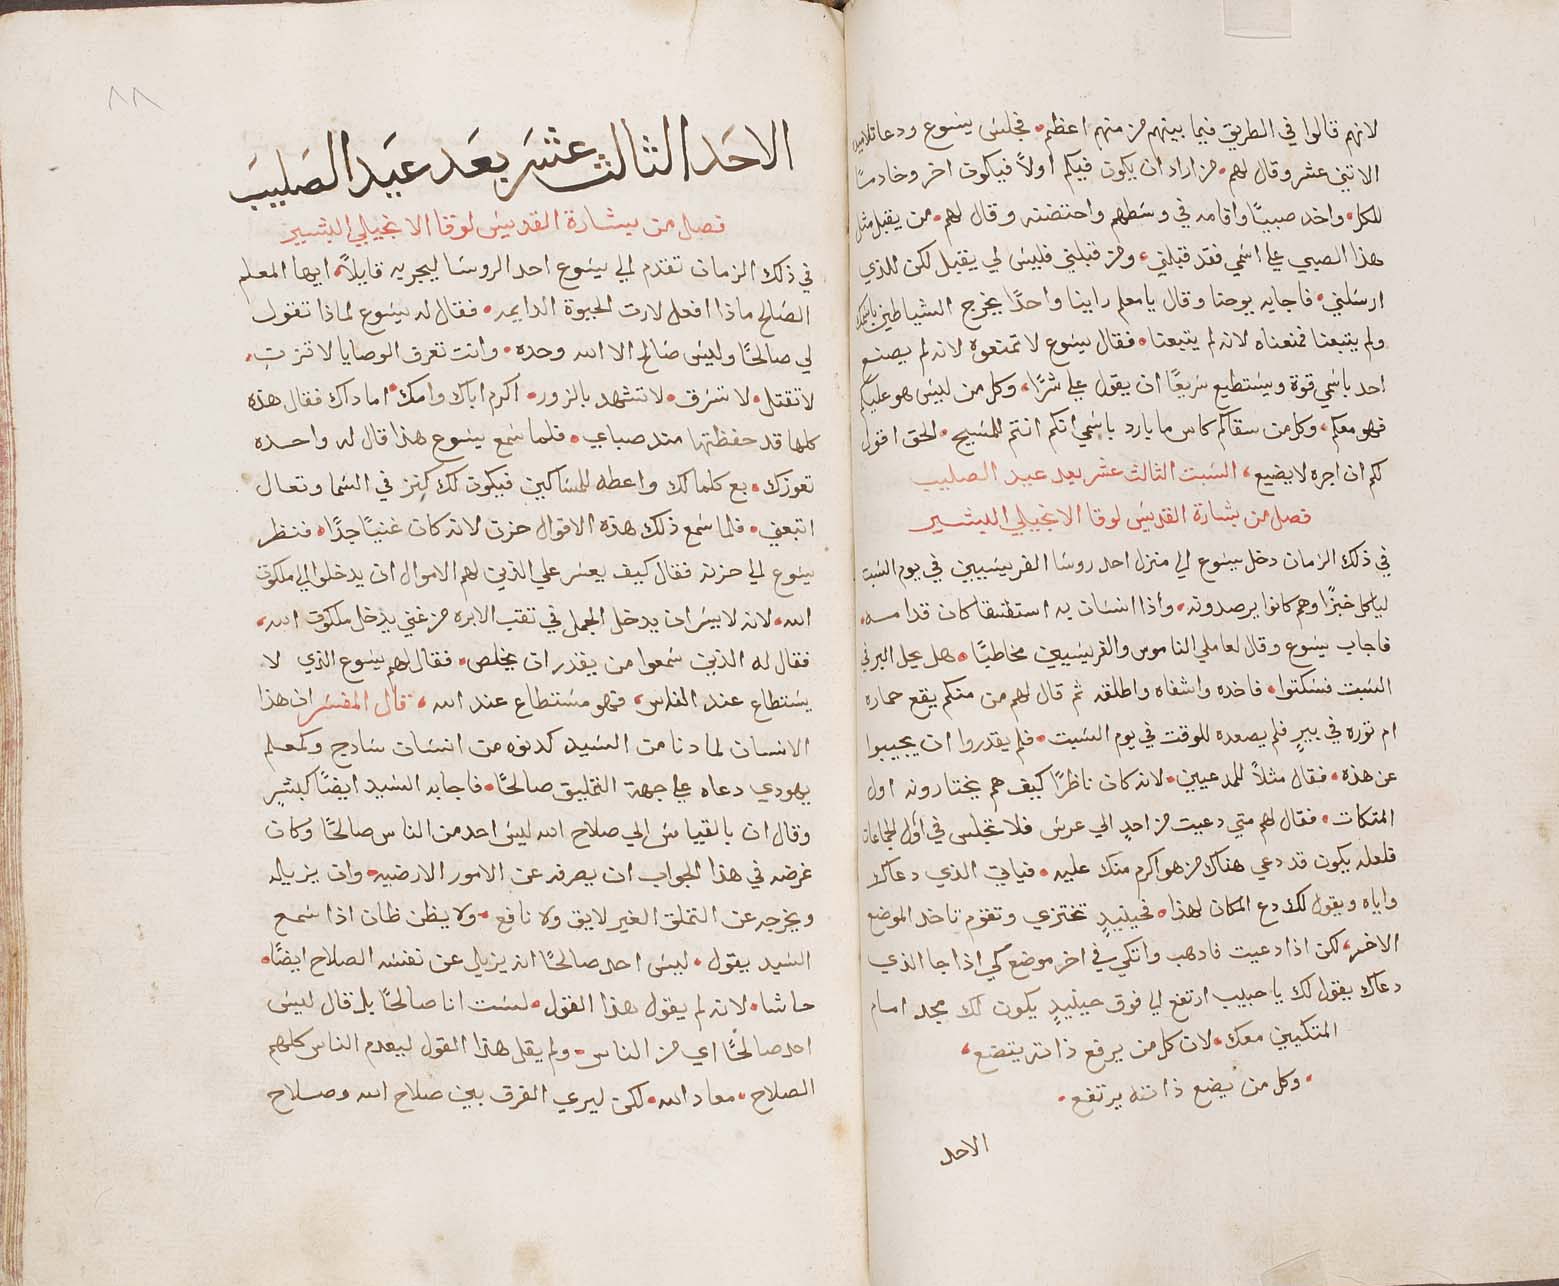 لانهم قالوا في الطريق فيما بينهم من منهم اعظم. فجلس يسوع ودعا تلاميذه
الاثني عشر وقال لهم. من اراد ان يكون فيكم اولاً فيكون اخر وخادمًا
للكل. واخد صبيًا واقامه في وسطهم واحتضنه وقال لهم. من يقبل مثل
هذا الصبي على اسمي فقد قبلني، ومن قبلني فليس لي يقبل لكن للذي
ارسلني. فاجابه يوحنا وقال يا معلم راينا واحدًا يخرج الشياطين باسمك
ولم يتبعنا فمنعناه لانه لم يتبعنا. فقال يسوع لا تمنعوه لانه لم يصنع
احد باسمي قوة ويستطيع سريعًا ان يقول علي شرًا، وكل من ليس هو عليكم
فهو معكم، وكل من سقاكم كاس ما بارد باسمي انكم انتم للمسيح. الحق اقول
لكم ان اجره لا يضيع، السبت الثالث عشر بعد عيد الصليب
فصل من بشارة القديس لوقا الانجيلي البشير
في ذلك الزمان دخل يسوع الي منزل احد روسا الفريسيين في يوم السبت
لياكل خبزًا وهم كانوا يرصدونه. واذا انسان به استسقا كان قدامه.
فاجاب يسوع وقال لعاملي الناموس والفريسيين مخاطبًا. هل يحل البر في
السبت فسكتوا. فاخده واشفاه واطلقه ثم قال لهم من منكم يقع حماره
ام ثوره في بيرٍ فلم يصعده للوقت في يوم السبت. فلم يقدروا ان يجيبوا
عن هذه. فقال مثلاً للمدعيين. لانه كان ناظرًا كيف هم يختارونه اول
المتكات. فقال لهم متي دعيت من احدٍ الي عرس فلا تجلس في اول الجماعات
فلعله يكون قد دعي هناك من هو اكرم منك عليه. فياتي الذي دعاك
واياه ويقول لك دع المكان لهذا. فحينيدٍ تختزي وتقوم تاخد الموضع
الاخر، لكن اذا دعيت فادهب واتكي في اخر موضع كي اذا جا الذي
دعاك يقول لك يا حبيب ارتفع الي فوق حينيدٍ يكون لك مجد امام
المتكيين معك. لان كل من يرفع ذاته يتضع،
. وكل من يضع ذاته يرتفع .
الاحد
٨٨
الاحد الثالث عشر بعد عيد الصليب
فصل من بشارة القديس لوقا الانجيلي البشير
في ذلك الزمان تقدم الي يسوع احد الروسا ليجربه قايلاً. ايها المعلم
الصالح ماذا افعل لارث الحيوة الدايمه. فقال له يسوع لماذا تقول
لي صالحًا وليس صالح الا الله وحده. وانت تعرف الوصايا لا تزنِ.
لا تقتل. لا تسرق. لا تشهد بالزور. اكرم اباك وامك. اما داك فقال هذه
كلها قد حفظتها مند صباي. فلما سمع يسوع هذا قال له واحده
تعوزك. بع كلما لك واعطه للمساكين فيكون لك كنز في السما وتعال
اتبعني. فلما سمع ذلك هذه الاقوال حزن لانه كان غنيًا جدًا. فنظر
يسوع الي حزنه فقال كيف يعسر علي الذين لهم الاموال ان يدخلوا الي ملكوت
الله. لانه لايسر ان يدخل الجمل في تقب الابره من غني يدخل ملكوت الله.
فقال له الذين سمعوا من يقدر ان يخلص. فقال لهم يسوع الذي لا
يستطاع عند الناس، فهو مستطاع عند الله، قال المفسر ان هذا
الانسان لما دنا من السيد كدنوه من انسان سادج وكمعلم
يهودي دعاه علي جهة التمليق صالحًا. فاجابه السيد ايضًا كبشر
وقال ان بالقياس الي صلاح الله ليس احد من الناس صالحًا وكان
غرضه في هذا الجواب ان يصرفه عن الامور الارضيه. وان يزيله
ويخرجه عن التملق الغير لايق ولا نافع. ولا يظن ظان اذا سمع
السيد يقول. ليس احد صالحًا انه يزيل عن نفسه الصلاح ايضًا.
حاشا. لانه لم يقول هذا القول. لست انا صالحًا بل قال ليس
احد صالحًا اي من الناس. ولم يقل هذا القول ليعدم الناس كلهم
الصلاح. معاد الله. لكن ليري الفرق بين صلاح الله وصلاح